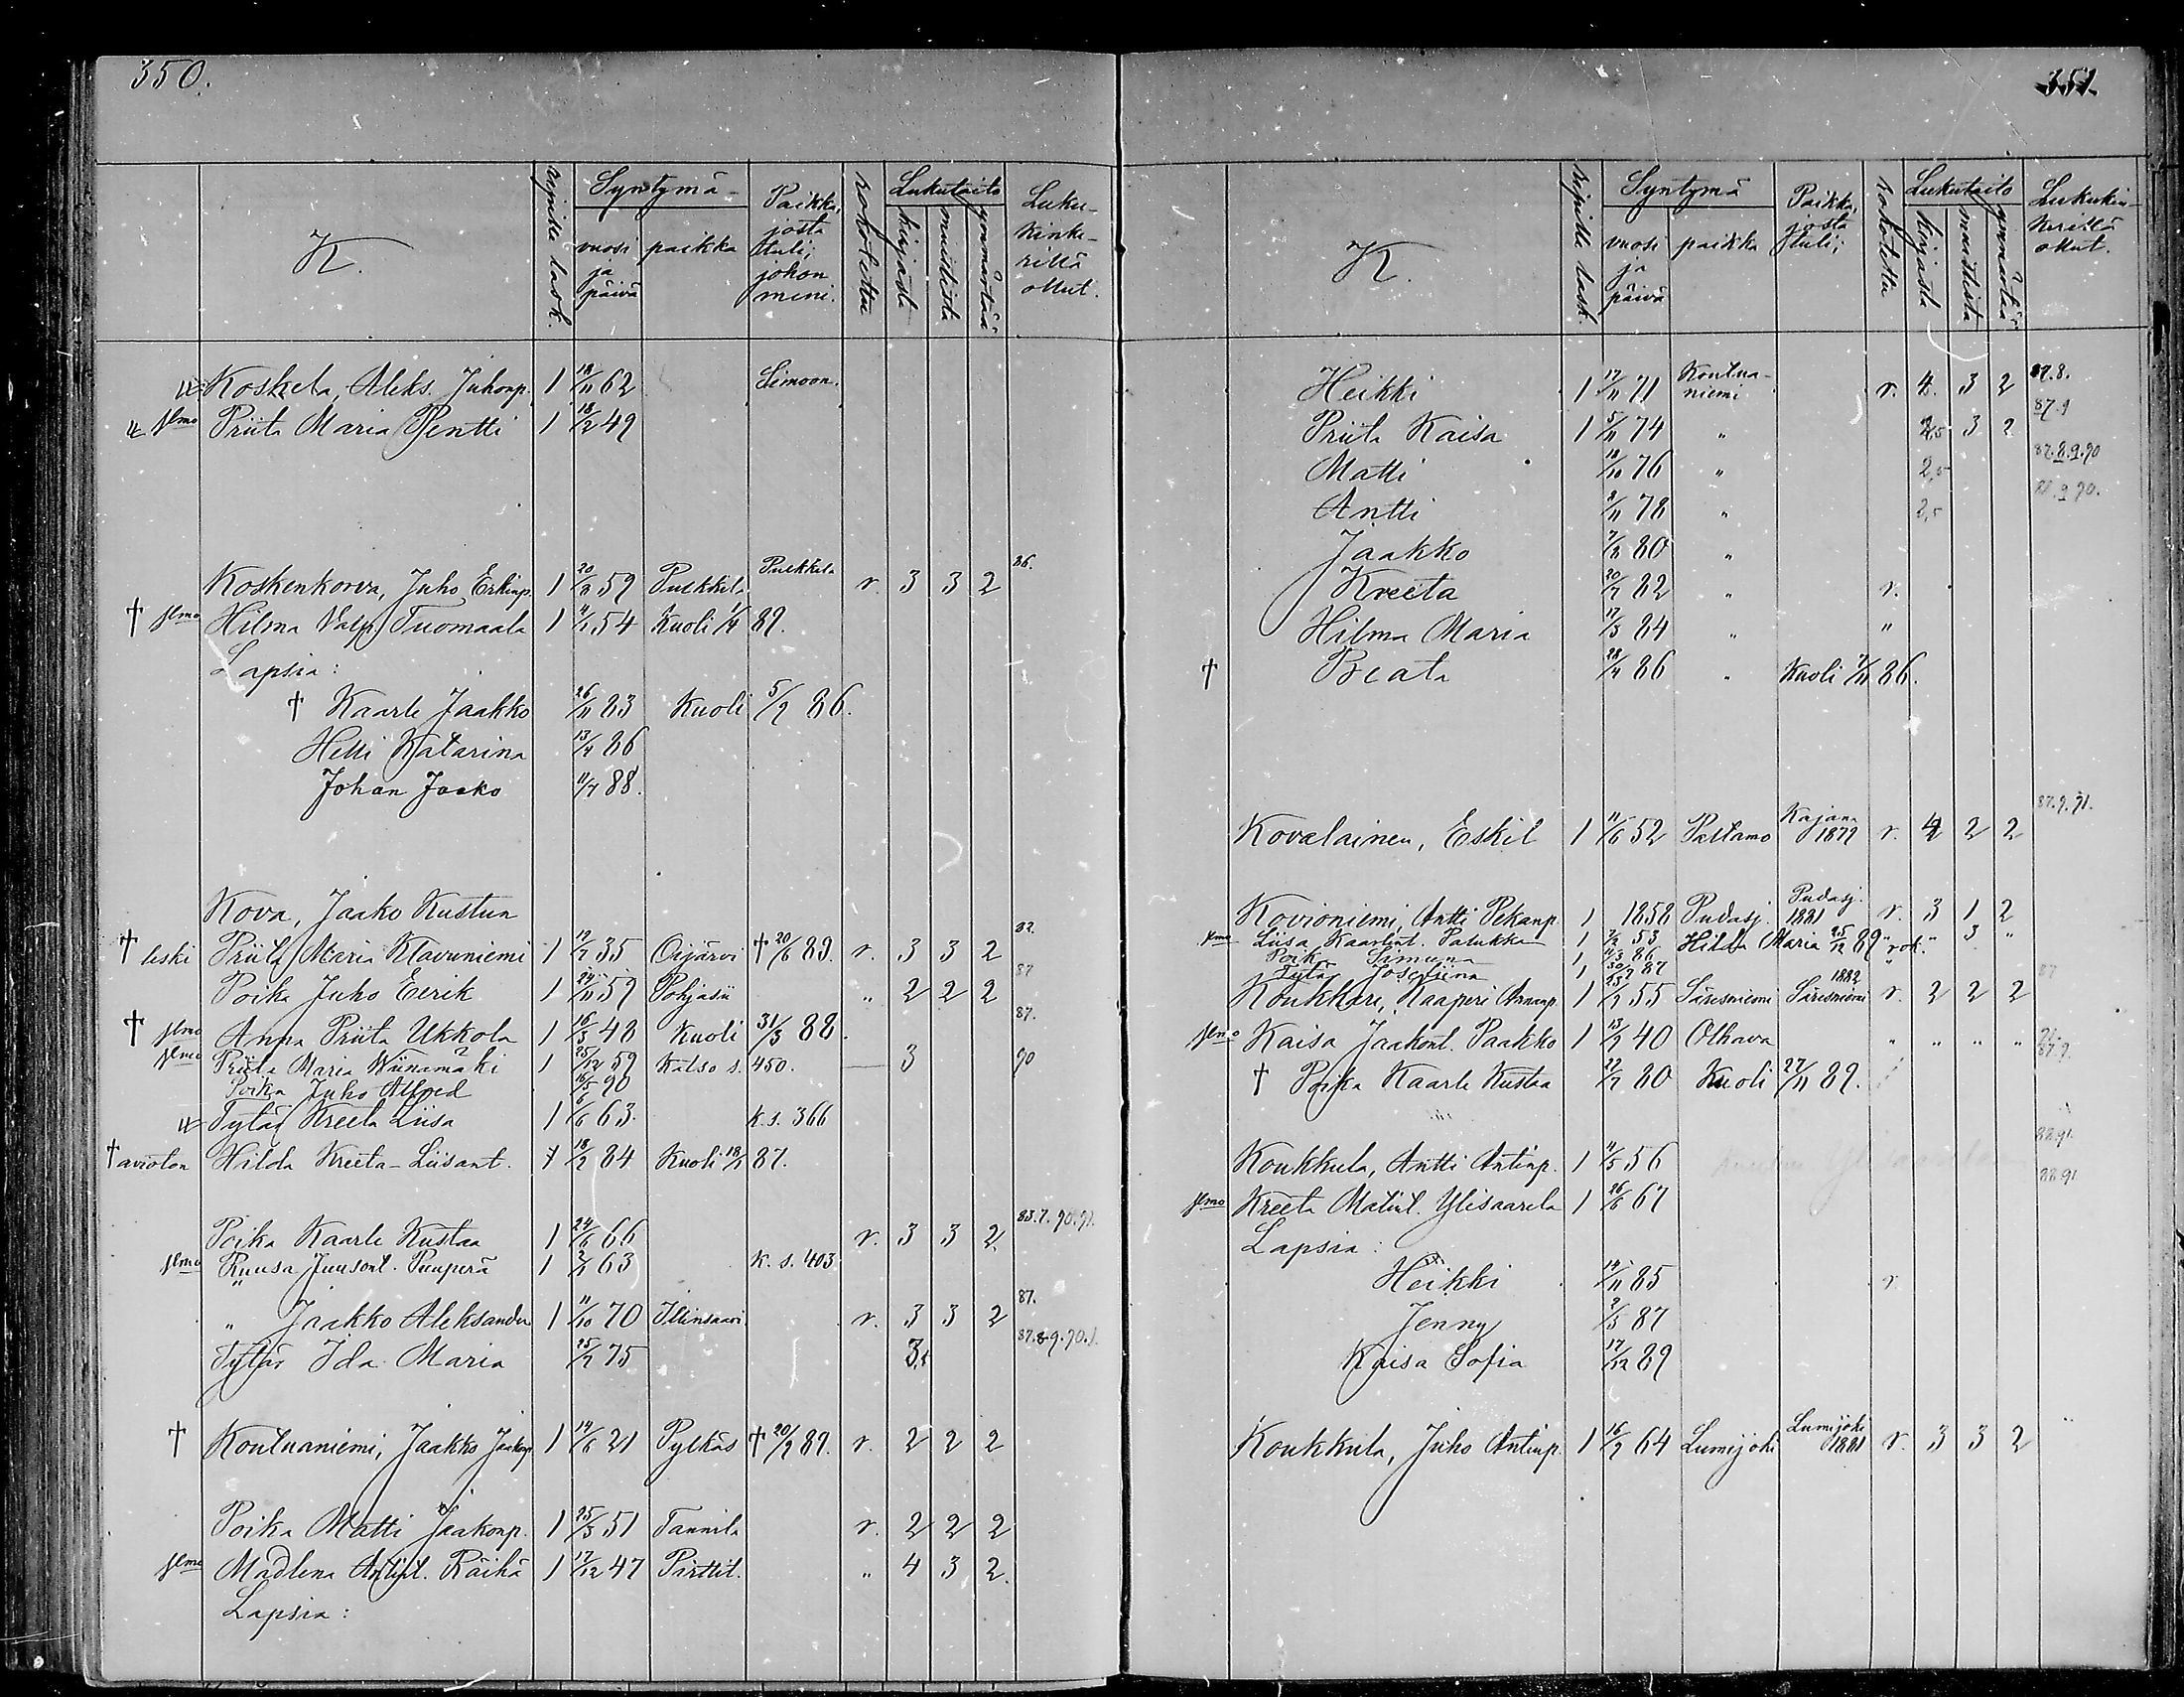 350.
K.
ripille lask.
Syntymä-
vuosi ja päivä
paikka
Paikka, josta tuli; johon meni.
rokotettu
Lukutaito
kirjasta
muistista
ymmärtää
Luku-kinke-rillä ollut.
Koskela, Aleks. Juhonp. 1 18/11 62 Simoon.
vmo Priita Maria Pentti 1 18/2 49
Koskenkorva, Juho Erkinp. 1 20/8 59 Pulkkila Pulkkila r. 3 3 2 86.
† vmo Hilma Valp. Tuomaala 1 11/1 54 Kuoli 1/4 89.
Lapsia:
† Kaarle Jaakko 26/11 83 Kuoli 5/2 86.
Helli Katarina 13/4 86
Johan Jaako 11/7 88.
Kova, Jaako Kustun
† leski Priita Maria Klavuniemi 1 19/2 35 Oijärvi † 20/6 89. r. 3 3 2
Poika Juho Eerik 1 24/11 59 Pohjasii " 2 2 2 87
† vmo Anna Priita Ukkola 1 16/5 48 Kuoli 31/3 88. 87.
vmo Priita Maria Wiinamäki 1 25/12 59 Katso s. 450. 3 90
Poika Juho Alfred 16/5 90
Tytär Kreeta Liisa 1 6/6 63. K. s. 366
† avioton Hilda Kreeta-Liisant. 18/2 84 Kuoli 18/1 87.
Poika Kaarle Kustaa 1 24/6 66 r. 3 3 2 83.7.90.91.
vmo Ruusa Juusont. Puuperä 1 2/1 63 K. s. 403
" Jaakko Aleksander 1 11/10 70 r. 3 3 2 87.
Tytär Ida Maria 25/7 75 87.8.9.90.1.
† Kontuaniemi, Jaakko Jaakonp. 1 14/6 21 Pylkäs † 20/2 89. r. 2 2 2
Poika Matti Jaakonp. 1 25/3 51 Tannila r. 2 2 2
vmo Madlena Antint. Räihä 1 17/12 47 Pirttit. " 4 3 2.
Lapsia:
351.
K.
ripille lask.
Syntymä
vuosi ja päivä
paikka
Paikka, josta tuli;
rokotettu
Lukutaito
kirjasta
muistista
ymmärtää
Lukukin-kerillä ollut.
Heikki 1 17/11 71 Kontua-niemi r. 4. 3 2 87.8.
Priita Kaisa 1 5/11 74 " 3 2 87.9
Matti 18/10 76 " 2,5 87.8.9.90
Antti 8/11 78 " 2,5
Jaakko 7/8 80 "
Kreeta 20/7 82 " r.
Hilma Maria 17/3 84 " "
† Beata 28/4 86 " Kuoli 7/11 86.
Kovalainen, Eskil 1 11/6 52 Paltamo Kajana 1879 r. 4 2 2 87.9.91.
Kovioniemi, Antti Pekanp. 1 1858 Pudasj. Pudasj. 1881 r. 3 1 2
vmo Liisa Kaarlent. Patukka 1 7/2 53 Hilda Maria 25/12 89 rok. " 3 "
Poik. Simuna 1 11/3 86
Tytär Josefiina 1 30/7 87
Koukkari, Kaaperi Annanp. 1 25/2 55 Säresniemi 1882 Säresniemi r. 2 2 2 87
vmo Kaisa Jaakont. Paakko 1 13/2 40 Olhava " " " "
† Poika Kaarle Kustaa 22/7 80 Kuoli 27/11 89.
Koukkula, Antti Antinp. 1 11/5 56 88.91.
vmo Kreeta Matint. Ylisaarela 1 26/6 67 88.91
Lapsia:
Heikki 14/11 85 r.
Jenny 2/3 87
Kaisa Sofia 17/12 89
Koukkula, Juho Antinp. 1 16/2 64 Lumijoki Lumijoki 1881 r. 3 3 2